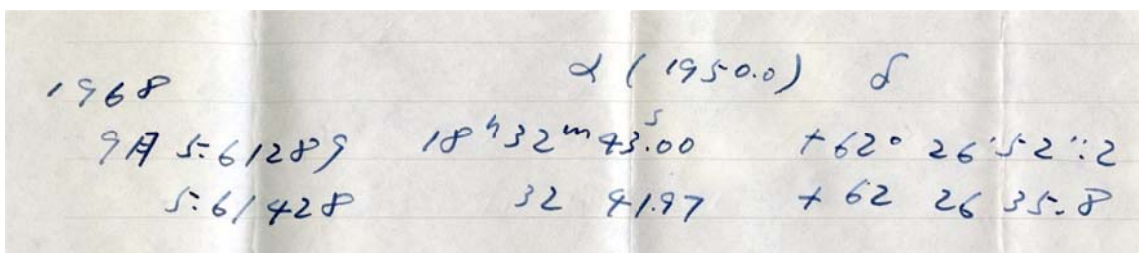 1968 α (1950.0) δ
9月 5.61289 18h32m43s.00 +62° 26'52".2
5.61428 32 41.97 +62 26 35.8